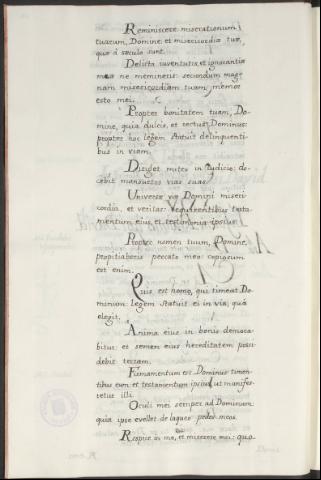 Reminiscere miserationum
tuarum, Domine: et misericordiæ tuæ,
quæ à sæculo sunt.
Delicta juventutis et ignorantia
mea ne memineris: secundum mag-
nam misericordiam tuam, memor
esto mei.
Propter bonitatem tuam, Do-
mine, quia dulcis, et rectus Dominus:
propter hoc legem statuit delinquenti-
bus in viam.
Diriget mites in Judicio: do-
cebit mansuetos vias suas.
Universæ viæ Domini miseri-
cordia, et veritas: requirentibus testa-
mentum eius, et testimonia ipsius.
Propter nomen tuum, Domine,
propitiaberis peccato meo: copiosum
est enim.
Quis est homo, qui timeat Do-
minum: legem statuit ei in via, quã
elegit.
Anima eius in bonis demora-
bitur: et semen eius hereditatem possi-
debit terram.
Firmamentum est Dominus timen-
tibus eum: et testamentum ipsius ut manifes-
tetur illi.
Oculi mei semper ad Dominum:
quia ipse evellet de laqueo pedes meos.
Respice in me, et miserere mei: quo-